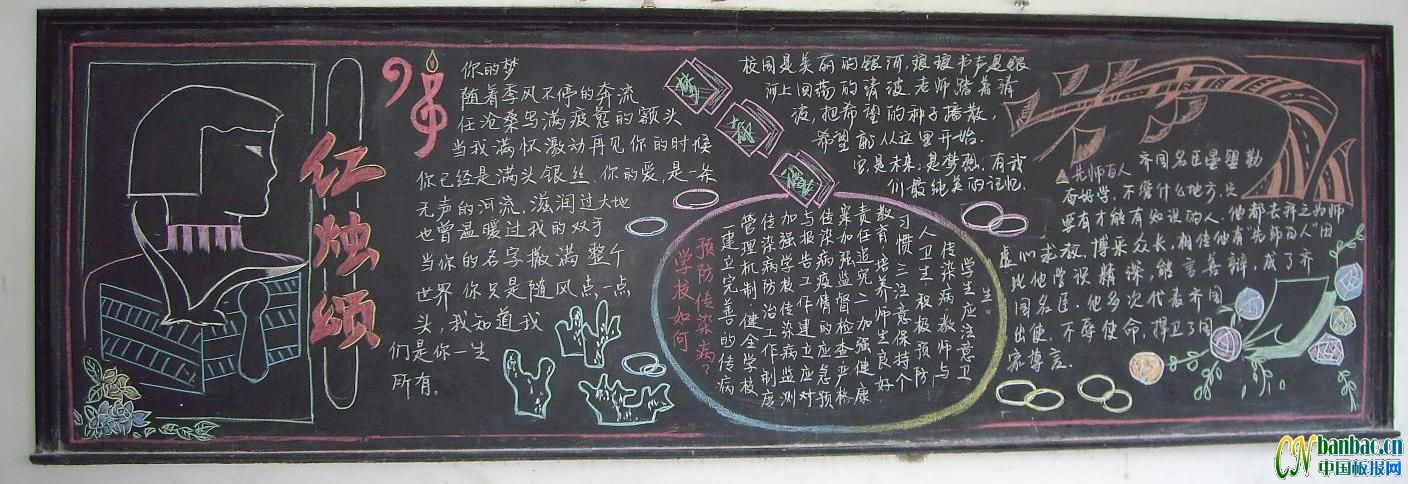 红烛颂
你的梦
随着季风不停的奔流
任沧桑写满疲惫的额头
当我满怀激动再见你的时候
你已经是满头银丝 你的爱，是一条
无声的河流，滋润过大地
也曾温暖过我的双手
当你的名字撒满整个
世界 你只是随风点一点
头，我知道我
们是你一生
所有。
校园是美丽的银河，琅琅书声是银
河上回荡的清波 老师踏着清
波，把希望的种子播散，
希望就从这里开始。
它是未来，是梦想，有我
们最纯美的记忆。
学校如何
预防传染病？
一建立完善的传病
管理机制 健全学校
传染病防治工作制度
加强学校传染病监测
与报告工作建立应对
传染病疫情的应急预
案加强监督检查严格
责任追究二加强健康
教育培养师生良好
习惯三注意保持个
人卫生积极预防
传染病教师与
学生应注意卫
生。
先师百人 齐国名臣晏婴勤
奋好学，不管什么地方，只
要有才能有知识的人，他都去拜之为师
虚心求教，博采众长，相传他有“先师百人”因
此他学识精深，能言善辩，成了齐
国名臣，他多次代表齐国
出使，不辱使命，捍卫了国
家尊言．
CN banbao.cn
中国板报网